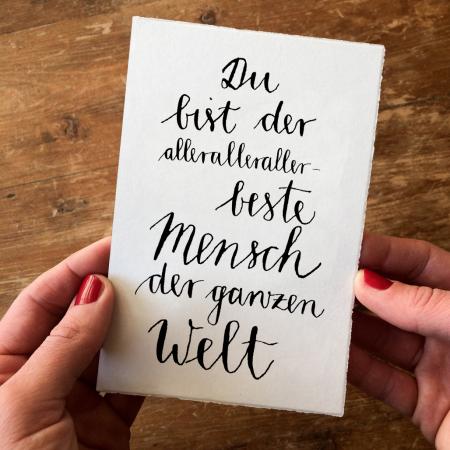 Du
bist der
alleralleraller-
beste
Mensch
der ganzen
Welt